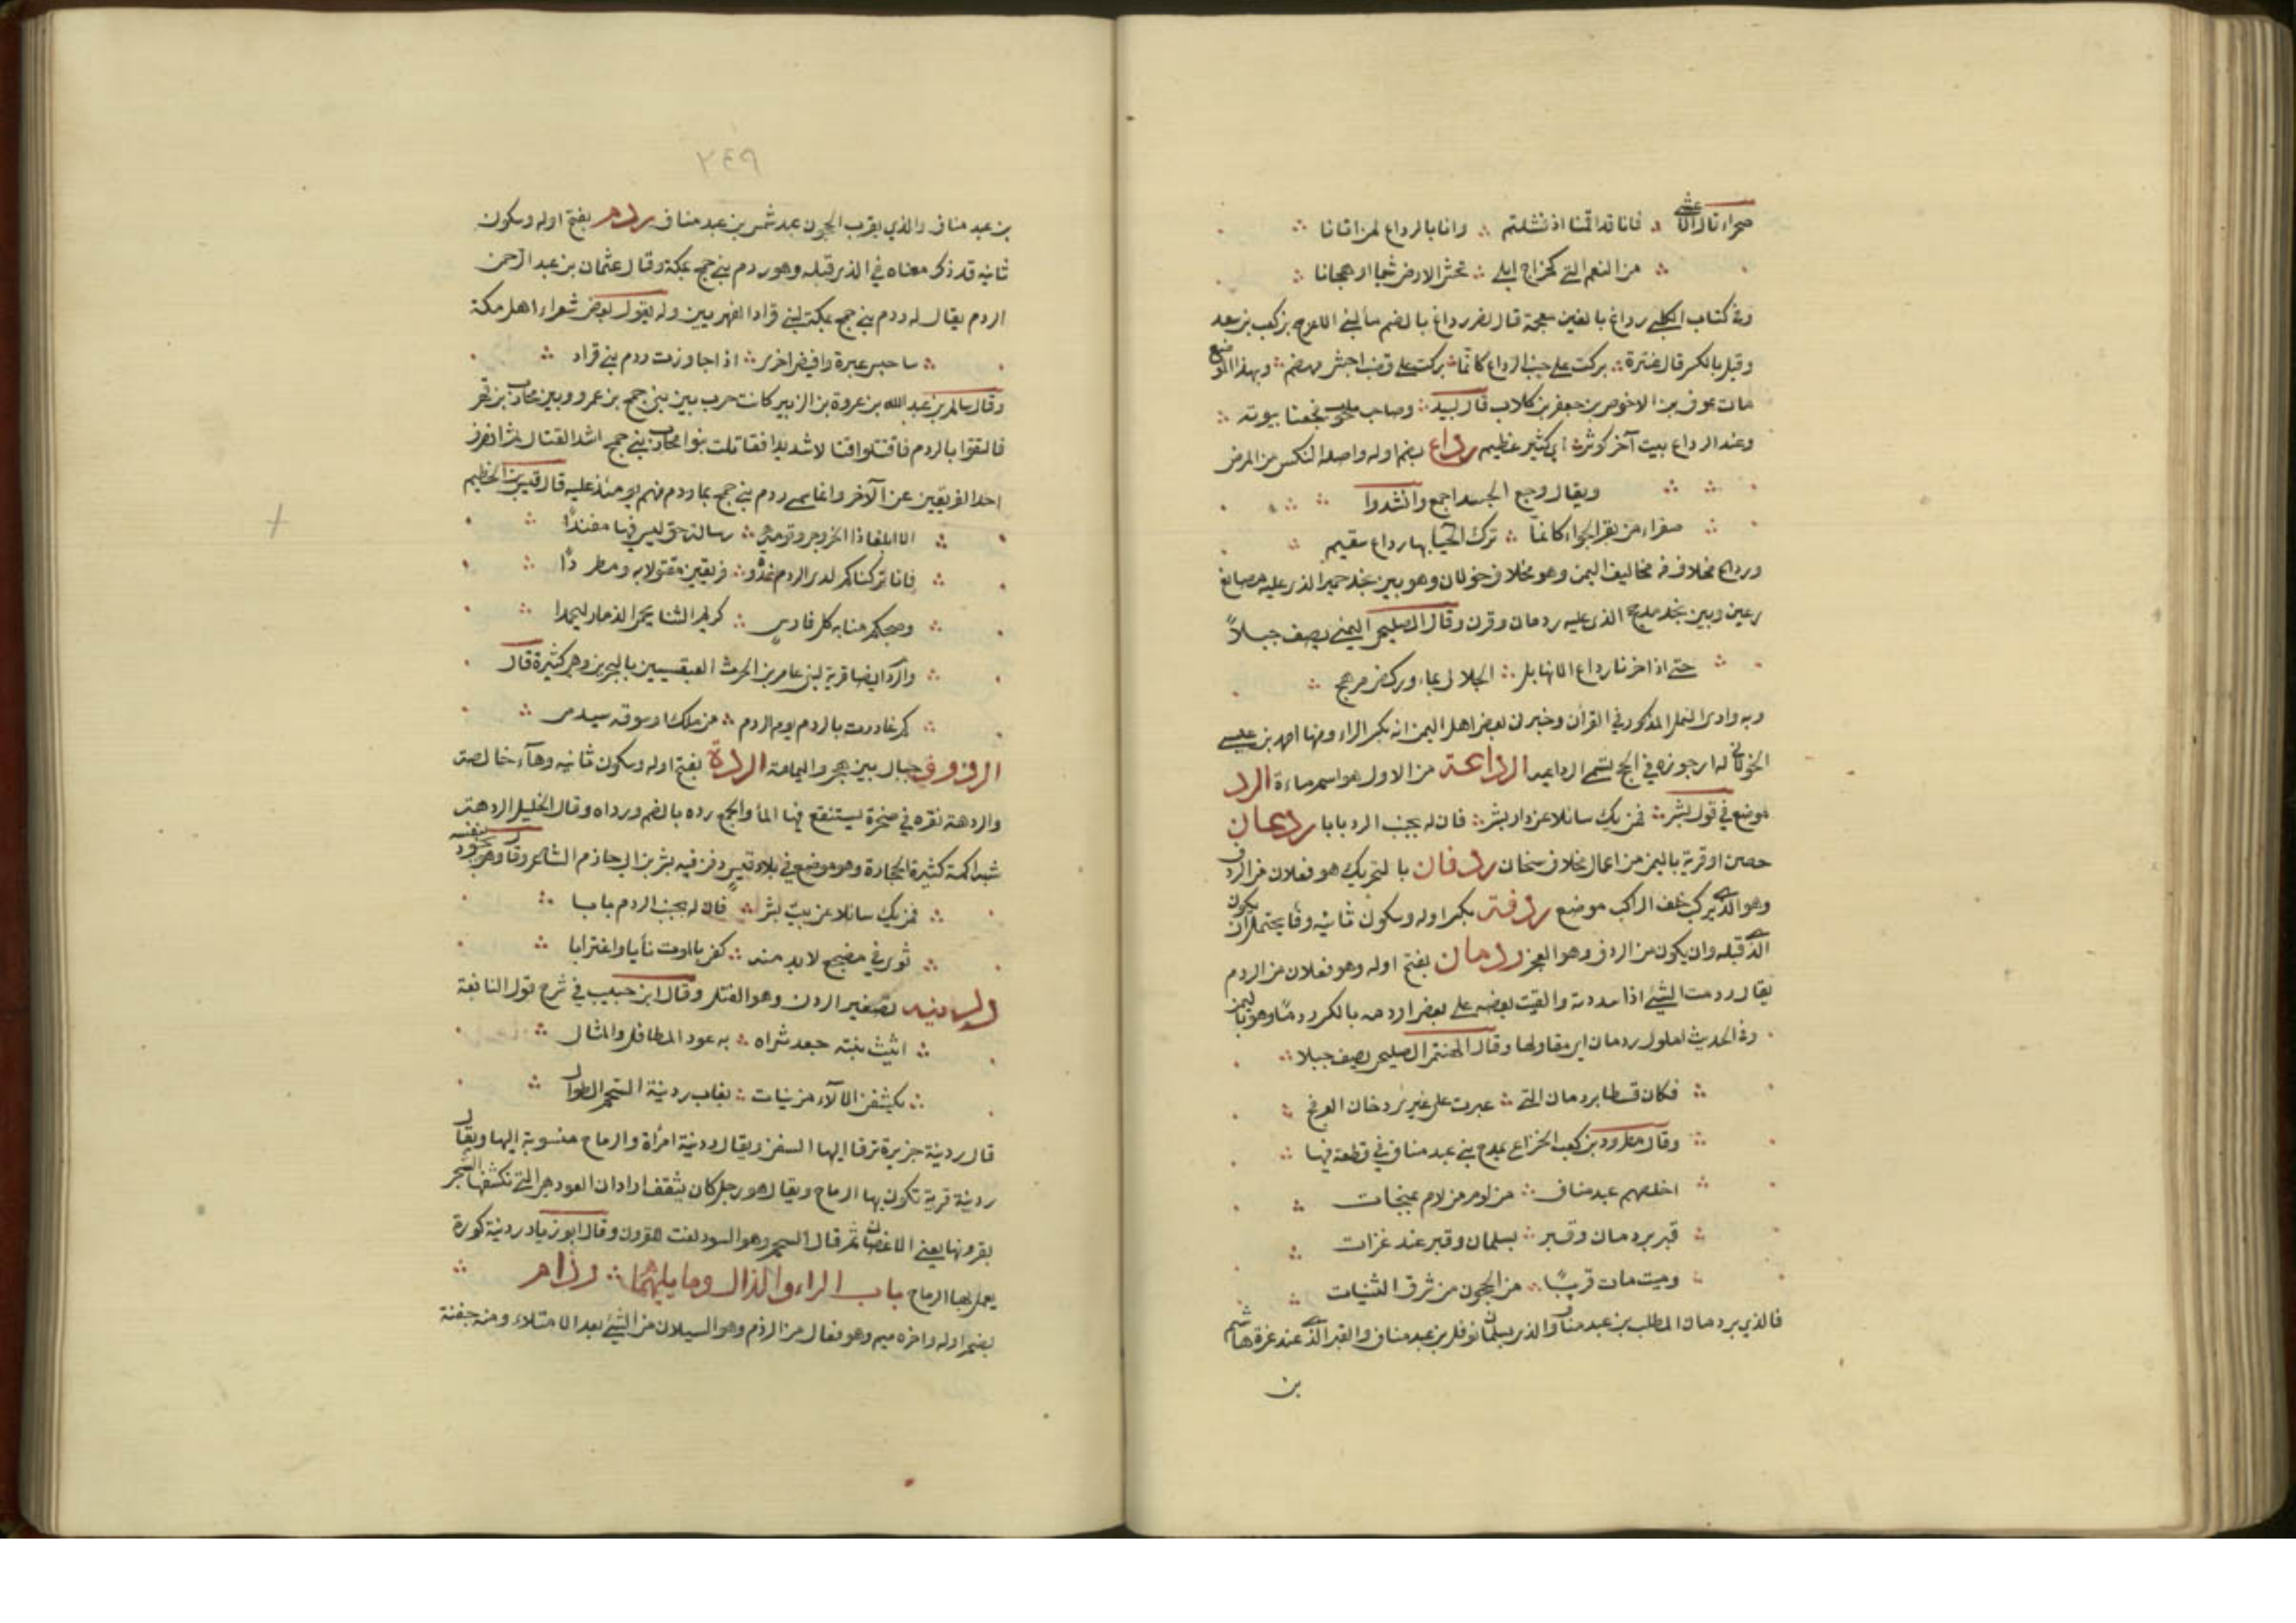 صحراء قال الاعشى ∴ فانا قد اقمنا اذ فشلتم ∴ وانا بالرداع لمن اتانا ∴
∴ من النعم التى كحراج ايلى ∴ تحش الارض شيما او هجانا ∴
وفى كتاب الكلبى رداغ بالغين معجمة قال نصر رداغ بالضم ماء لبنى الاعرج بن كعب بن سعد
وقيل بالكسر قال عنترة ∴ بركت على جنب الرداع كانما ∴ بركت على قصب اجش مهضم ∴ وبهذا الموضع
مات عوف بن الاحوص بن جعفر بن كلاب قال لبيد ∴ وصاحب ملحوب فجعنا بيومه ∴
وعند الرداع بيت آخر كوثر ∴ اى كثير عظيم رداع بضم اوله واصله النكس من المرض
∴ ∴ ويقال وجع الجسد اجمع وانشدوا ∴ ∴
∴ صفراء من بقر الجواء كانما ∴ ترك الحيا بها رداع سقيم ∴
ورداع مخلاف من مخاليف اليمن وهو مخلاف خولان وهو بين نجد حمير الذى عليه مصانع
رعين وبين نجد مذحج الذى عليه ردمان وقرن وقال الصليحى اليمنى يصف جبلاً
∴ حتى اذا خرنا رداع الانهابلى ∴ الجلال بماء وركض مرهج ∴
وبه وادى النمل المذكور فى القرآن وخبرنى بعض اهل اليمن انه بكسر الراء ومنها احمد بن عيسى
الخولانى له ارجوزه فى الحج تسمى الرداعيه الرداعة من الاول هو اسم ماءة الرد
موضع فى قول بشر ∴ فمن يك سائلا عن دار بشر ∴ فان له بجنب الرد بابا ردعان
حصن او قرية باليمن من اعمال مخلاف سنحان ردفان بالتحريك هو فعلان من الردف
وهو الذى يركب خلف الراكب موضع ردفة بكسر اوله وسكون ثانيه وفا يحتمل ان يكون
الذى قبله وان يكون من الردف وهو العجز ردمان بفتح اوله وهو فعلان من الردم
يقال ردمت الشئ اذا سددته والقيت بعضه على بعض اردمه بالكسر ردمًا وهو باليمن
وفى الحديث املوك ردمان اى مقاولها وقال الصليحى يصف جبلا ∴
∴ فكان قسطا بردمان التى ∴ عبرت على غير دخان العرفج ∴
∴ وقال مطرود بن كعب الخزاعى يمدح بنى عبد مناف فى قطعة فيها ∴
∴ اخلصهم عبد مناف ∴ من لوم من لام بمنجات ∴
∴ قبر بردمان وقبر ∴ بسلمان وقبر عند غزات ∴
∴ وميت مات قريبًا ∴ من الحجون من شرق الثنيات ∴
فالذي بردمان المطلب بن عبد مناف والذى بسلمان نوفل بن عبد مناف والقبر الذى عند غزة هاشم
بن
٢٤٩
بن عبد مناف والذي بقرب الحجون عبد شمس بن عبد مناف ردم بفتح اوله وسكون
ثانيه قد ذكر معناه فى الذى قبله وهو ردم بنى جمح بمكة وقال عثمان بن عبد الرحمن
الردم يقال له ردم بنى جمح بمكة لبنى قراد الفهريين وله يقول بعض شعراء اهل مكة
∴ ساحبس عبرة وافيض اخرى ∴ اذا جاوزت ردم بنى قراد ∴
وقال سالم بن عبد الله بن عروة بن الزبير كانت حرب بين بنى جمح بن عمرو وبين محارب بن فهر
فالتقوا بالردم فاقتتلوا قتالا شديدا فقاتلت بنو محارب بنى جمح اشد القتال ثم انصرف
احد الفريقين عن الآخر وانما سمى ردم بنى جمح بما ردم منهم يومئذ عليه قال قيس بن الخطيم
∴ الا ابلغا ذا الخزرجى وقومه ∴ رسالة حق ليس فيها مفندًا ∴
∴ فانا تركناكم لدى الردم غدوة ∴ فريقين مقتولا به ومطردًا ∴
∴ وصبحكم منا به كل فارس ∴ كريم الثنا يحمى الذمار ليحمدا ∴
∴ والردم ايضا قرية لبنى عامر بن الحرث العبقسيين بالبحرين وهى كثيرة قال
∴ كم غادرت بالردم يوم الردم ∴ من ملك او سوقه سيدمى ∴
الردوف جبال بين هجر واليمامة الردة بفتح اوله وسكون ثانيه وهاء خالصة
والردهة نقره فى صخرة يستنقع فيها الماء والجمع رده بالضم ورداه وقال الخليل الردهة
شبه اكمة كثيرة الحجارة وهو موضع فى بلاد قيس دفن فيه بشر بن ابى حازم الشاعر وقال وهو يجود بنفسه
∴ فمن يك سائلا عن بيت بشر ∴ فان له بجنب الردم بابا ∴
∴ ثوى فى مضجع لا بد منه ∴ كفى بالموت نأيا واغترابا ∴
ردينة تصغير الردن وهو الفتل وقال ابن حبيب فى شرح قول النابغة
∴ اثيث نبته جعد ثراه ∴ به عود المطافل والمثال ∴
∴ يكشفن الالاء مزينات ∴ بغاب ردينة السحم الطوال ∴
قال ردينة جزيرة ترفا اليها السفن ويقال ردينة امرأة والرماح منسوبة اليها ويقال
ردينة قرية تكون بها الرماح ويقال هو رجل كان يثقف اراد ان العود هى التى تكشف الشجر
بقرونها يعنى الاغصان ثم قال السحم وهو السود لغت القرون وقال ابو زياد ردينة كورة
يعمل بها الرماح باب الراء والذال وما يليهما ∴ رذام ∴
بضم اوله واخره ميم وهو فعال من الرذم وهو السيلان من الشئ بعد الامتلاء ومنه جفنة